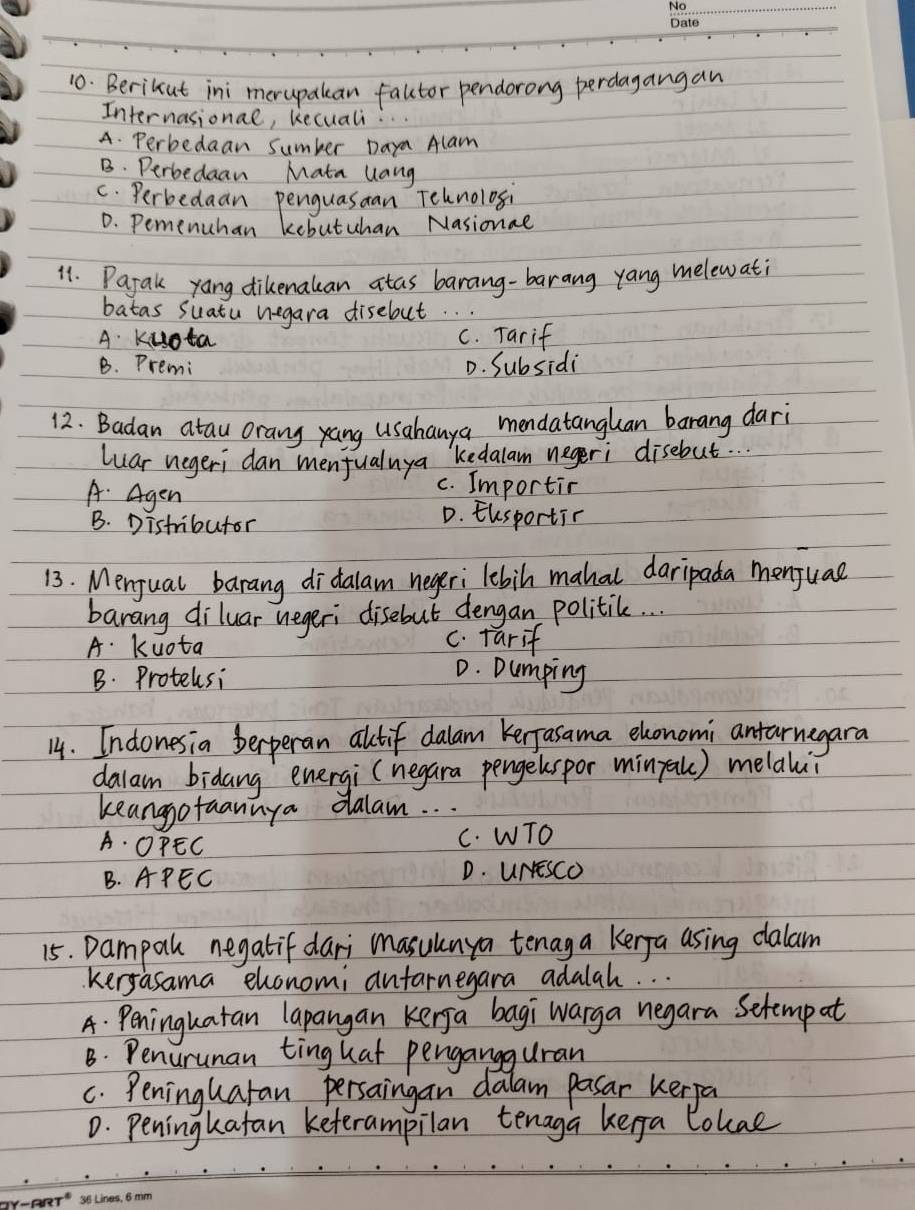 No
Date
10. Berikut ini merupakan faktor pendorong perdagangan
Internasional, kecuali ...
A. Perbedaan Sumber Daya Alam
B. Perbedaan Mata Uang
C. Perbedaan penguasaan Teknologi
D. Pemenuhan kebutuhan Nasional
11. Pajak yang dikenakan atas barang-barang yang melewati
batas suatu negara disebut ...
A. Kuota C. Tarif
B. Premi D. Subsidi
12. Badan atau orang yang usahanya mendatangkan barang dari
luar negeri dan menjualnya kedalam negeri disebut...
A. Agen C. Importir
B. Distributor D. Eksportir
13. Menjual barang didalam negeri lebih mahal daripada menjual
barang diluar negeri disebut dengan politik...
A. Kuota C. Tarif
B. Proteksi D. Dumping
14. Indonesia berperan aktif dalam kerjasama ekonomi antarnegara
dalam bidang energi (negara pengekspor minyak) melalui
keanggotaannya dalam ...
A. OPEC C. WTO
B. APEC D. UNESCO
15. Dampak negatif dari masuknya tenaga kerja asing dalam
kerjasama ekonomi antarnegara adalah ...
A. Peningkatan lapangan kerja bagi warga negara setempat
B. Penurunan tingkat pengangguran
C. Peningkatan persaingan dalam pasar kerja
D. Peningkatan keterampilan tenaga kerja lokal
DY-ART® 36 Lines, 6 mm